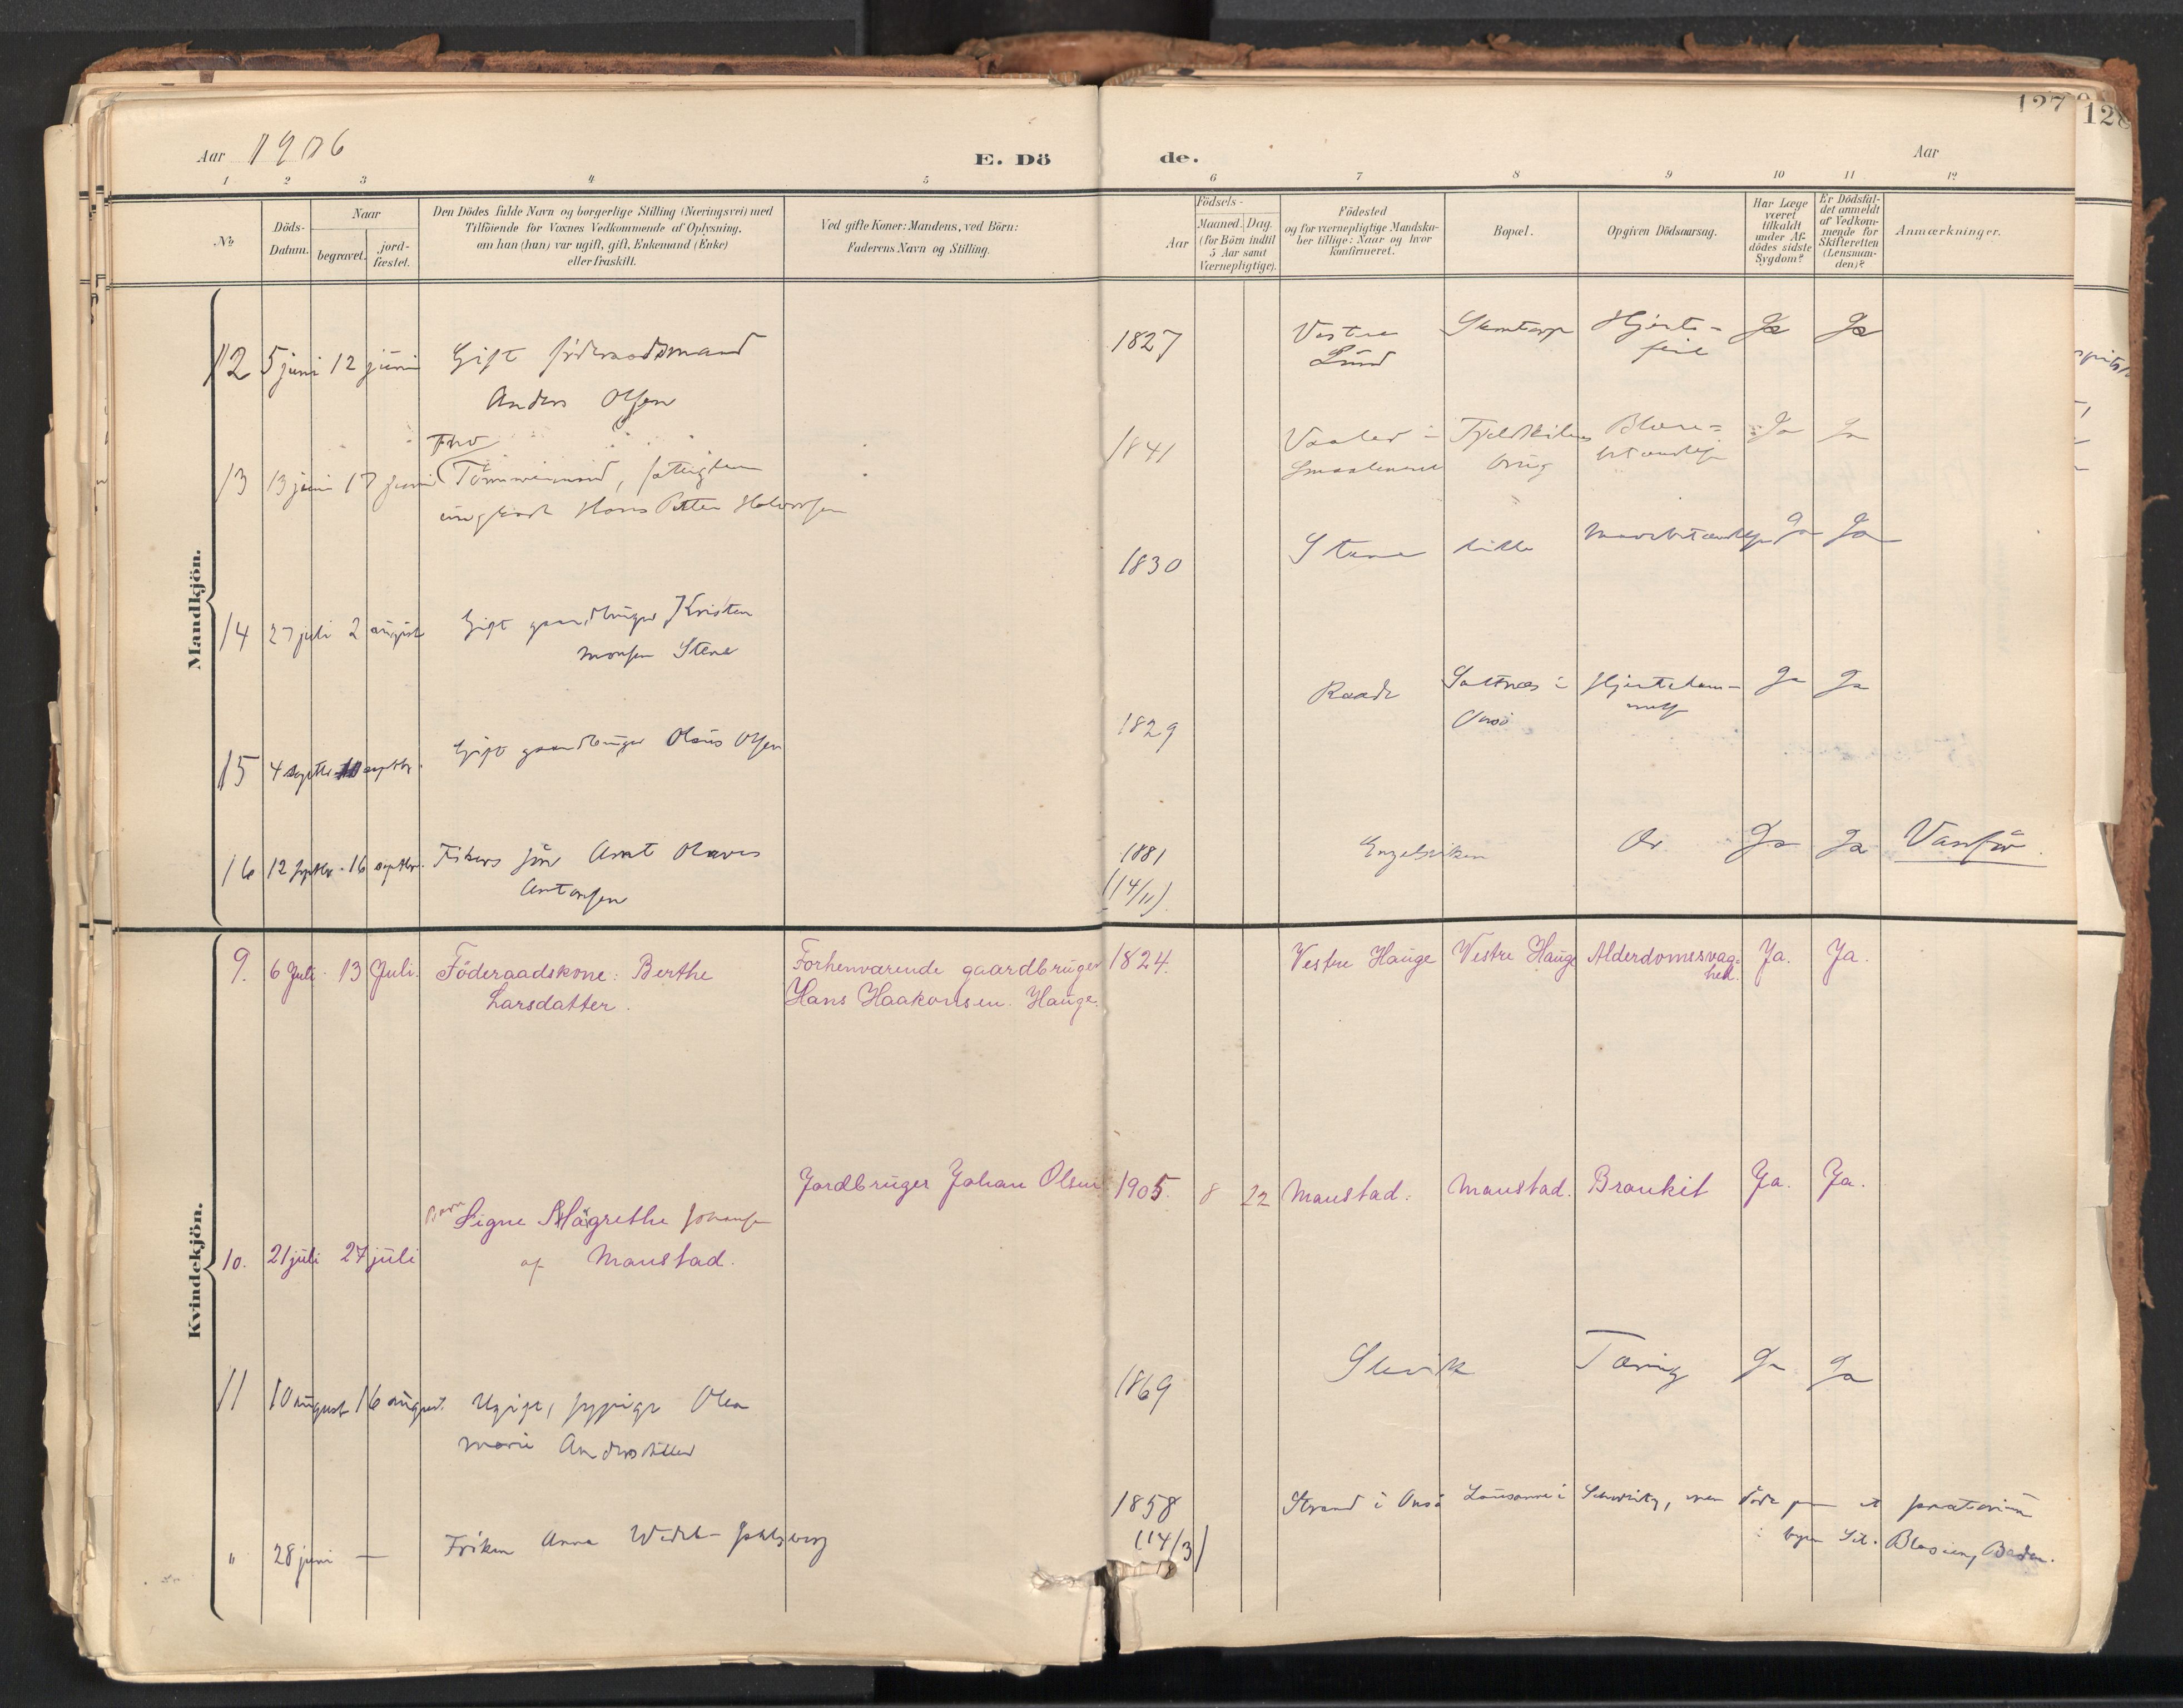 127
128
Aar 1906
E. Dö
de.
Aar
1 2 3 4 5 6 7 8 9 10 11 12
No
Döds-
Datum.
Naar
begravet.
jord-
fæstet.
Den Dödes fulde Navn og borgerlige Stilling (Næringsvei) med
Tilföiende for Voxnes Vedkommende af Oplysning,
om han (hun) var ugift, gift, Enkemand (Enke)
eller fraskilt.
Ved gifte Koner: Mandens, ved Börn:
Faderens Navn og Stilling.
Födsels-
Aar
Maaned. Dag.
(for Börn indtil
5 Aar samt
Værnepligtige).
Födested
og for værnepligtige Mandska-
ber tillige: Naar og hvor
konfirmeret.
Bopæl.
Opgiven Dödsaarsag.
Har Læge
været
tilkaldt
under Af-
dödes sidste
Sygdom?
Er Dödsfal-
det anmeldt
af Vedkom-
mende for
Skifteretten
(Lensman-
den)?
Anmærkninger.
Mandkjön.
12 5 juni 12 juni Gift föderaadsmand
Anders Olsen
1827 Vestre
Lund
Hjerte-
feil
Ja Ja
Fhv
13 13 juni 17 juni Tömmermand, fattiglem
ungkarl Hans Petter Halvorsen
1841 Vaaler i
Smaalenene
Blære-
betændelse
Ja Ja
14 27 juli 2 august Gift gaardbruger Kristen
Monsen Stene
1830 Stene lille Mavebetændelse Ja Ja
15 4 septbr 10 septbr. Gift gaardbruger Olaus Olsen
1829 Raade Saltnes i
Onsö
Hjertelam-
melse
Ja Ja
16 12 septbr. 16 septbr. Fiskers sön Arnt Olaves
Antonsen
1881
(14/11).
Engelsviken Ja Ja Vanför.
Kvindekjön.
9. 6 Juli 13 Juli. Föderaadskone: Berthe
Larsdatter.
Forhenværende gaardbruger
Hans Haakonsen Hauge.
1824. Vestre Hauge Vestre Hauge Alderdomssvag-
hed.
Ja. Ja.
10. 21 juli 27 juli
Barn Signe Margrethe Johansen
af Maustad.
Jordbruger Johan Olsen
1905. 8 22 Maustad. Maustad. Bronkit Ja. Ja.
11 10 august 16 august. Ugift, sypige Olea
Marie Andersdatter
1869 Slevik Tæring Ja Ja
" 28 juni — Fröken Anna Wedel-Jahlsberg
1858
(14/3)
Strand i Onsö Lausanne i Schweitz, men döde paa et sanatorium
i byen Sct. Blasien, Baden.